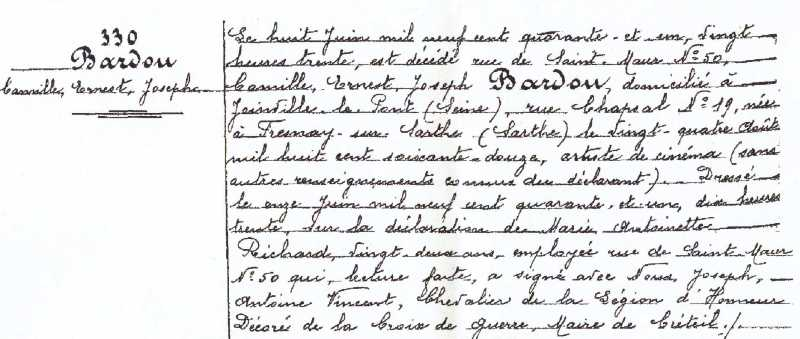 330
Bardou
Camille, Ernest, Joseph
Le huit Juin mil neuf cent quarante-et-un, vingt
heures trente, est décédé rue de Saint-Maur N° 50,
Camille, Ernest, Joseph Bardou, domicilié à
Joinville-le-Pont (Seine), rue Chapsal N° 19, né
à Fresnay-sur-Sarthe (Sarthe) le vingt-quatre Août
mil huit cent soixante-douze, artiste de cinéma (sans
autres renseignements connus du déclarant). Dressé
le onze Juin mil neuf cent quarante-et-un, dix heures
trente, sur la déclaration de Marie Antoinette
Richard, vingt-deux ans, employée rue de Saint-Maur
N° 50 qui, lecture faite, a signé avec Nous, Joseph,
Antoine Vincent, Chevalier de la Légion d'Honneur
Décoré de la Croix de Guerre, Maire de Créteil./.